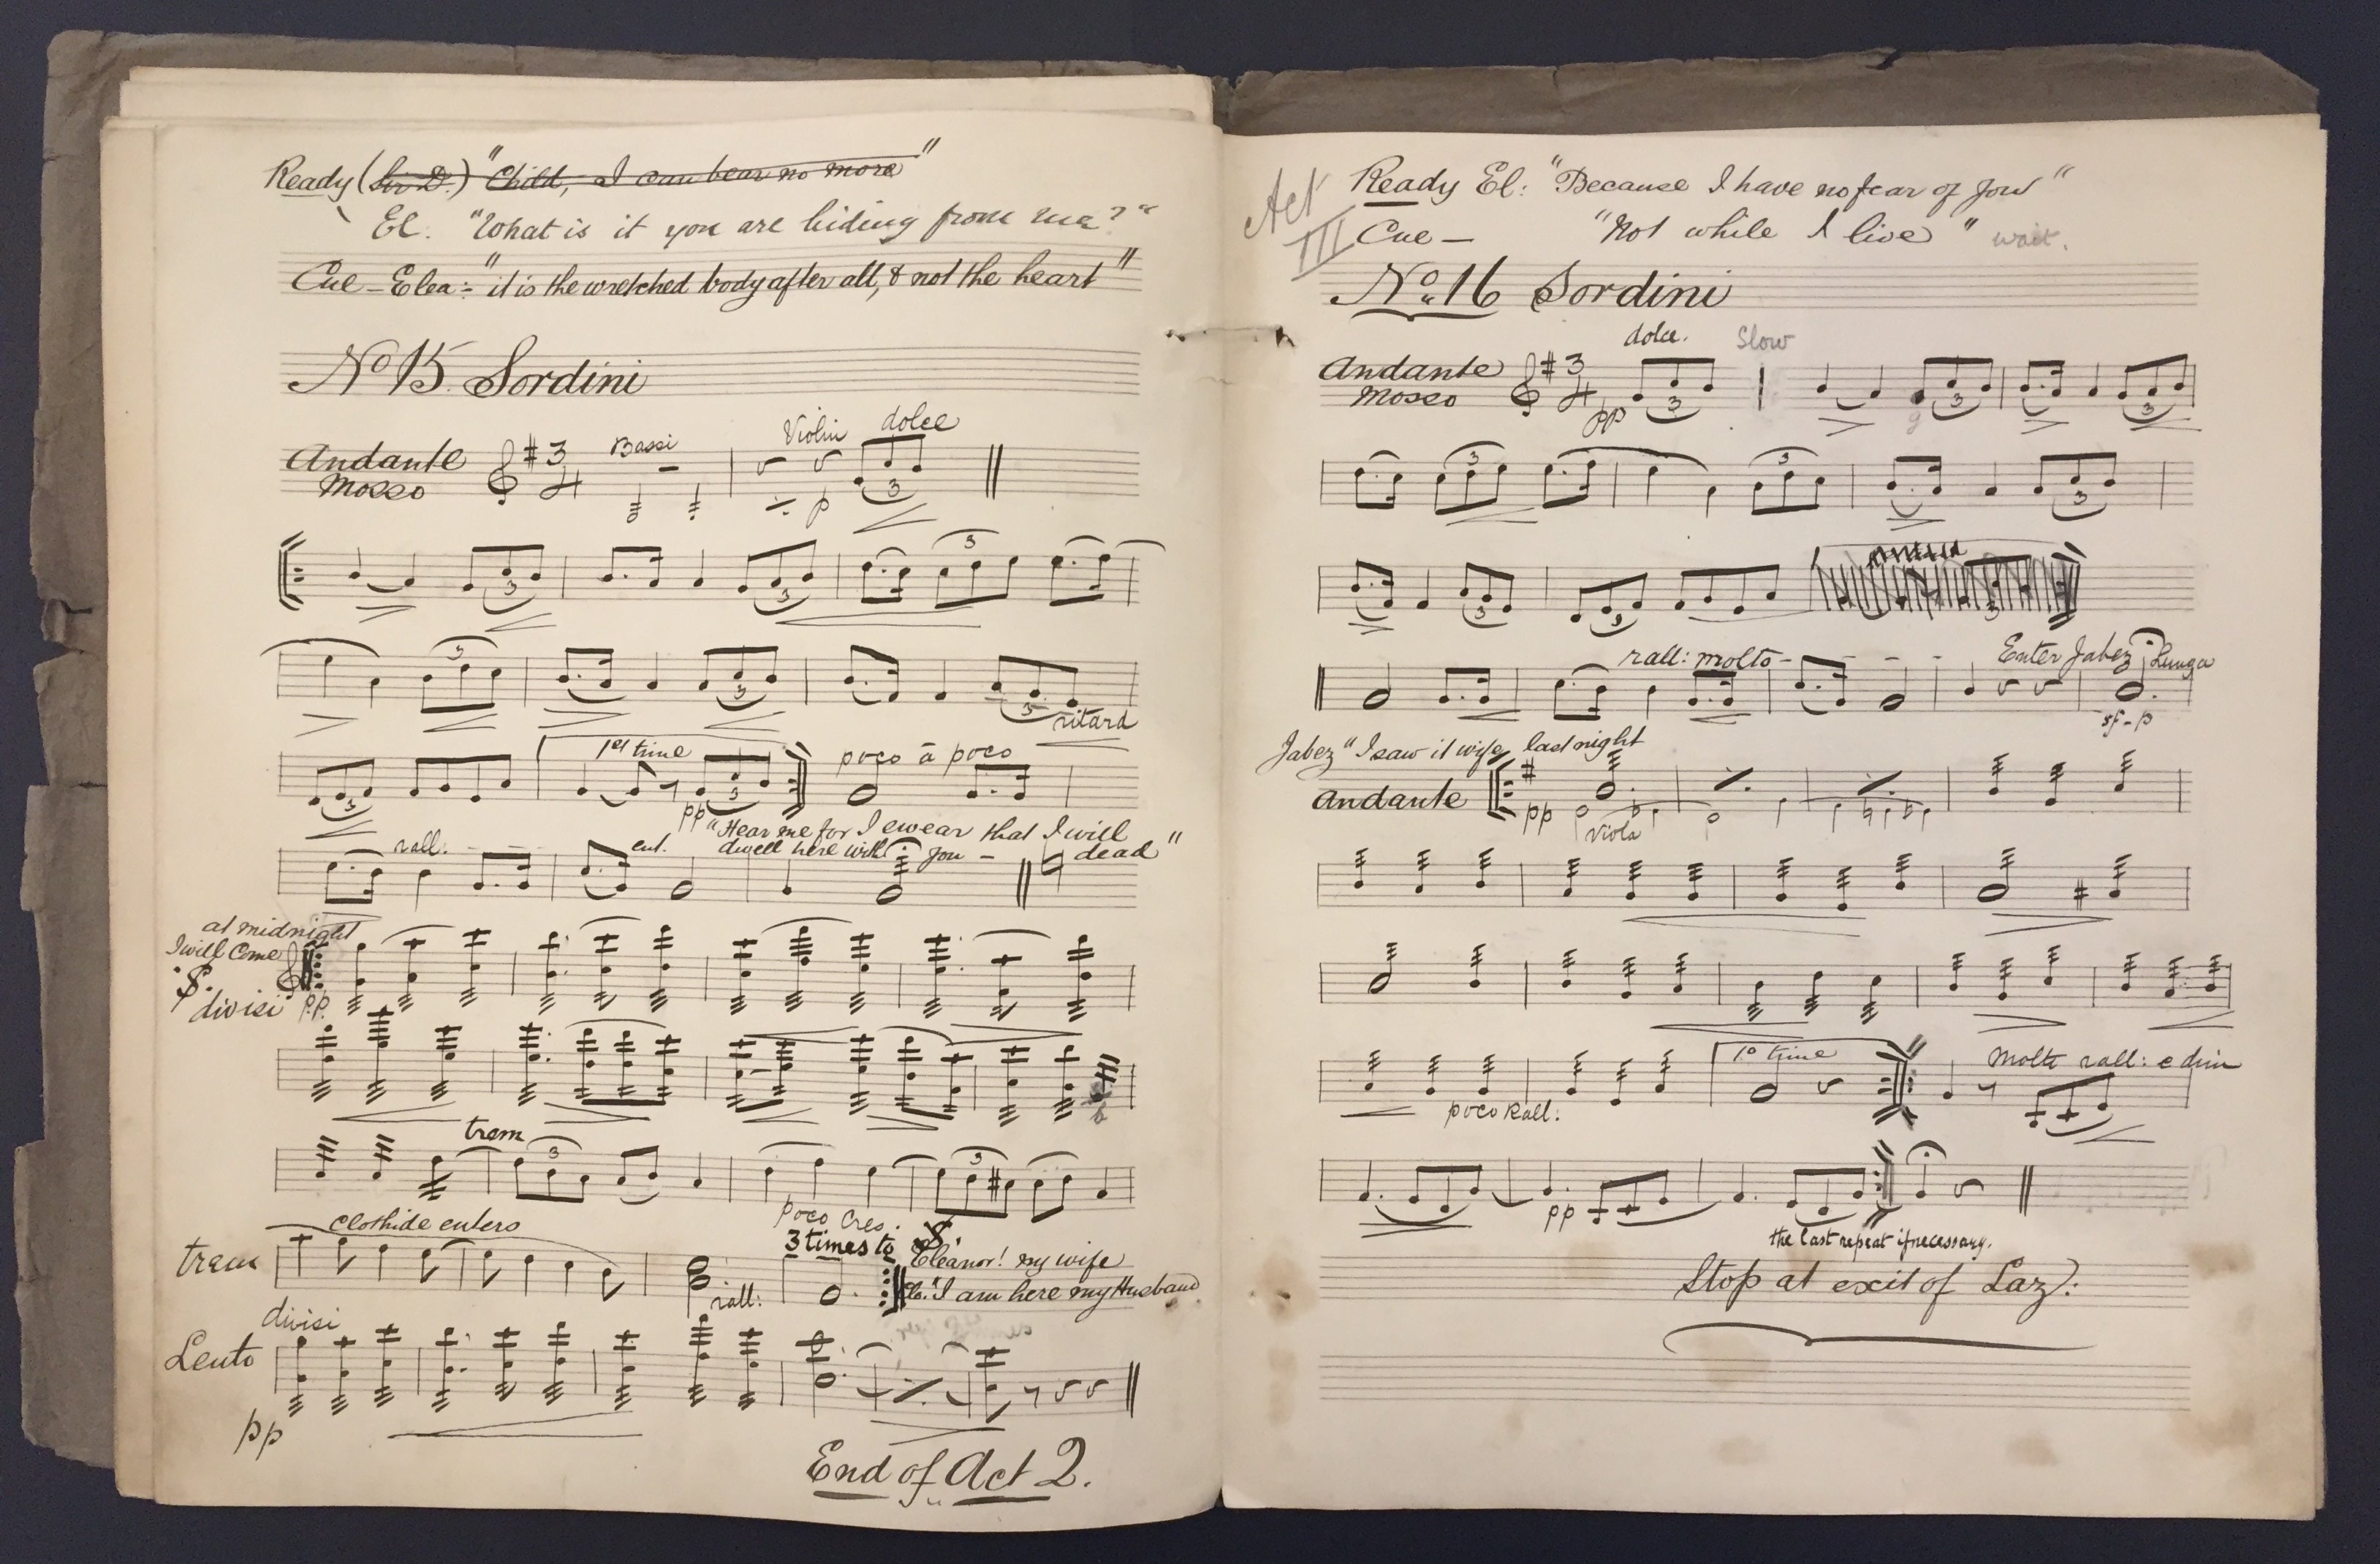 Ready (Sir D.) "Child, I can bear no more"
El. "What is it you are hiding from me?"
Cue - Elea:- "it is the wretched body after all, & not the heart"
No 15. Sordini
Andante Mosso
3 4
Bassi
Violin dolce
p
3
3
3
3
3
3
3
ritard
1st time
poco a poco
3
3
pp
"Hear me for I swear that I will
dwell here with you - dead"
rall.
at midnight
I will come
divisi pp.
trem
3
3
poco Cres.
clothide enters
3 times to
trem
rall:
Eleanor! my wife
"I am here my Husband
divisi
Lento
pp
End of Act 2.
Act III
Ready El: "Because I have no fear of you"
Cue - "Not while I live" wait.
No. 16 Sordini
dolce. Slow
Andante Mosso
3 4
pp
3
3
3
3
3
3
3
3
3
rall: molto - - -
Enter Jabez Lunga
sf - p
Jabez "I saw it wife, last night
Andante
pp
Viola
1o time
Molto rall: e dim
poco Rall:
pp
the last repeat if necessary.
Stop at exit of Laz):